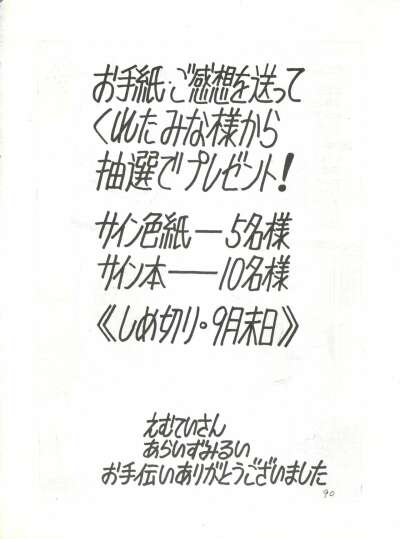 お手紙・ご感想を送って
くれたみな様から
抽選でプレゼント!
サイン色紙―5名様
サイン本――10名様
《しめ切り・9月末日》
えむていさん
あらいずみるい
お手伝いありがとうございました
90